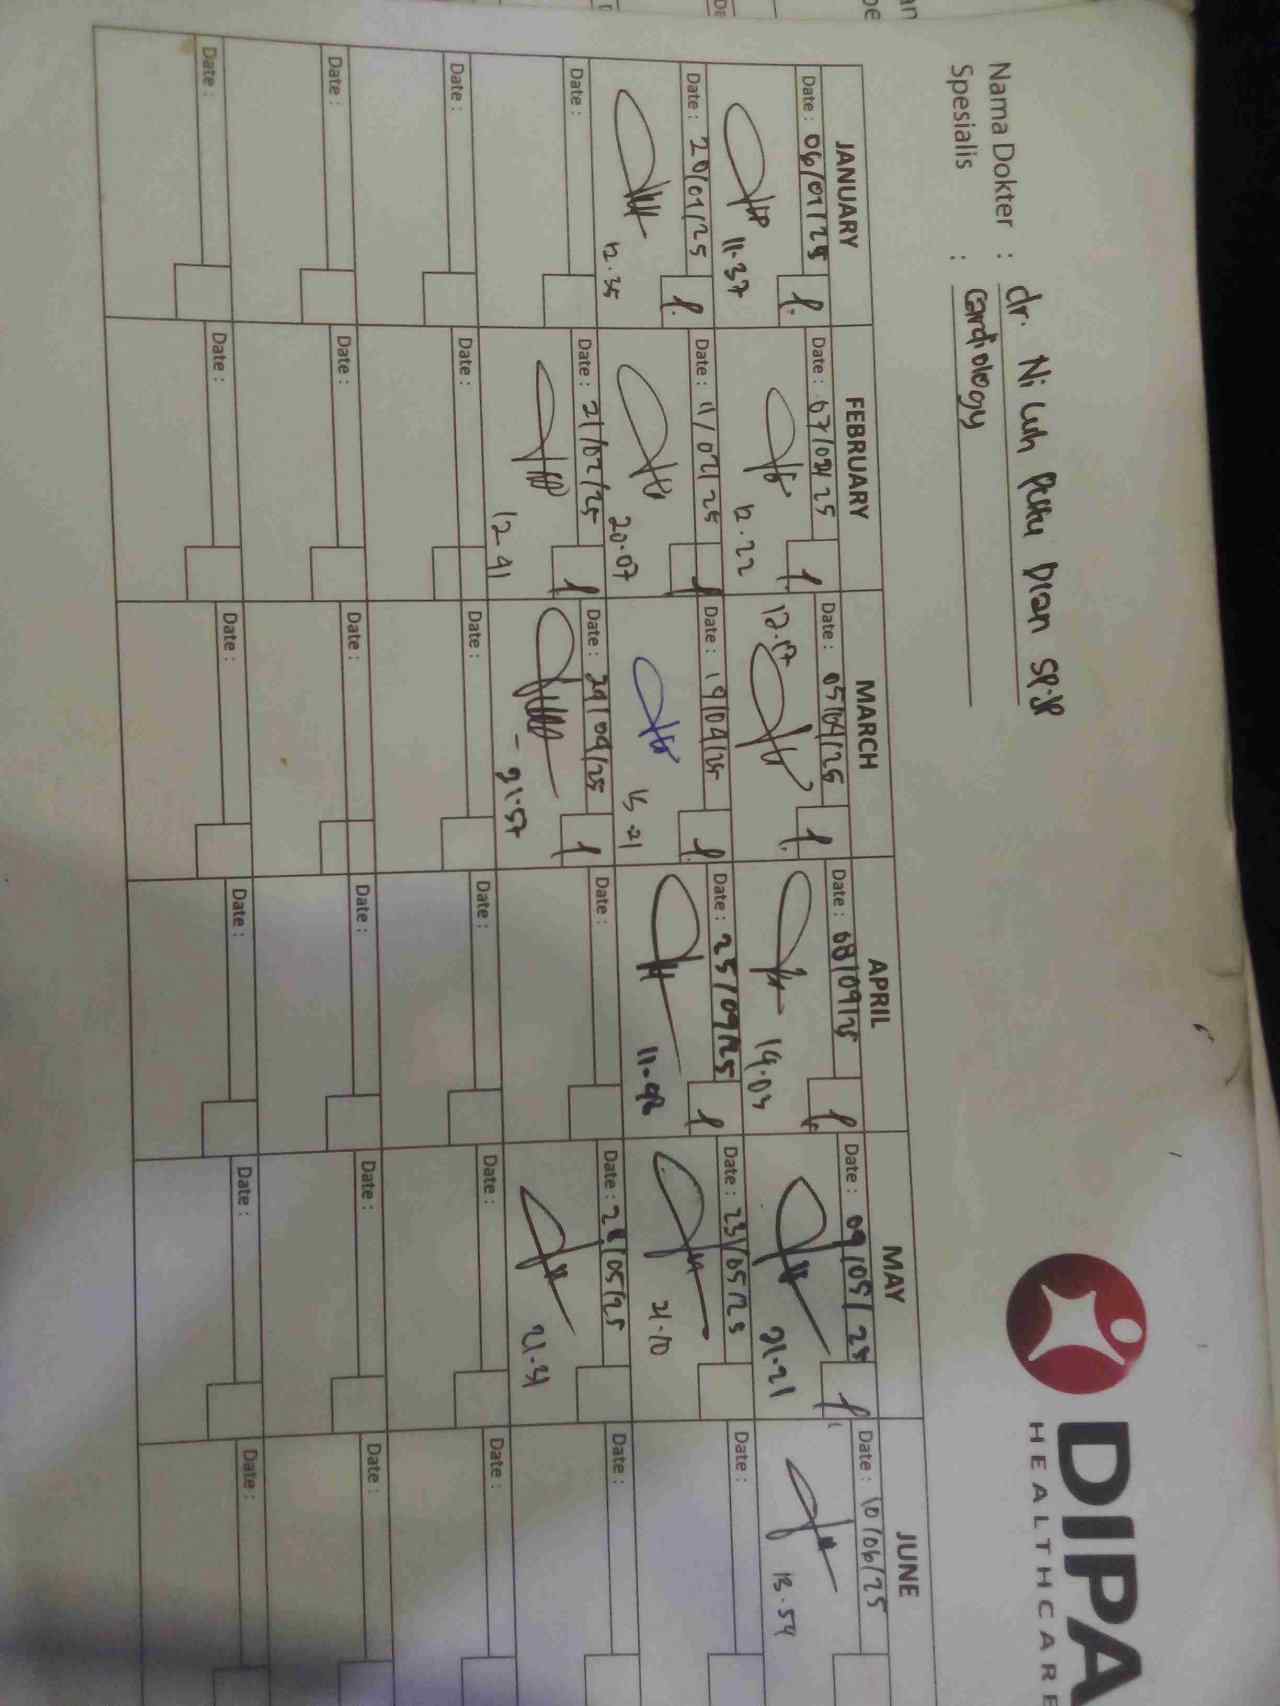 DIPA
HEALTHCARE
Nama Dokter : dr. Ni Luh Putu Dian SP.JP
Spesialis : Cardiology
JANUARY FEBRUARY MARCH APRIL MAY JUNE
Date : 06/01/25 Date : 07/02/25 Date : 05/04/25 Date : 08/04/25 Date : 09/05/25 Date : 10/06/25
11.37 12.22 12.17 14.03 21.21 13.54
Date : 20/01/25 Date : 11/02/25 Date : 19/04/25 Date : 25/04/25 Date : 23/05/25 Date :
12.35 20.07 15.21 11.48 21.10
Date : Date : 21/02/25 Date : 24/04/25 Date : Date : 28/05/25 Date :
12.41 21.57 21.31
Date : Date : Date : Date : Date : Date :
Date : Date : Date : Date : Date : Date :
Date : Date : Date : Date : Date : Date :